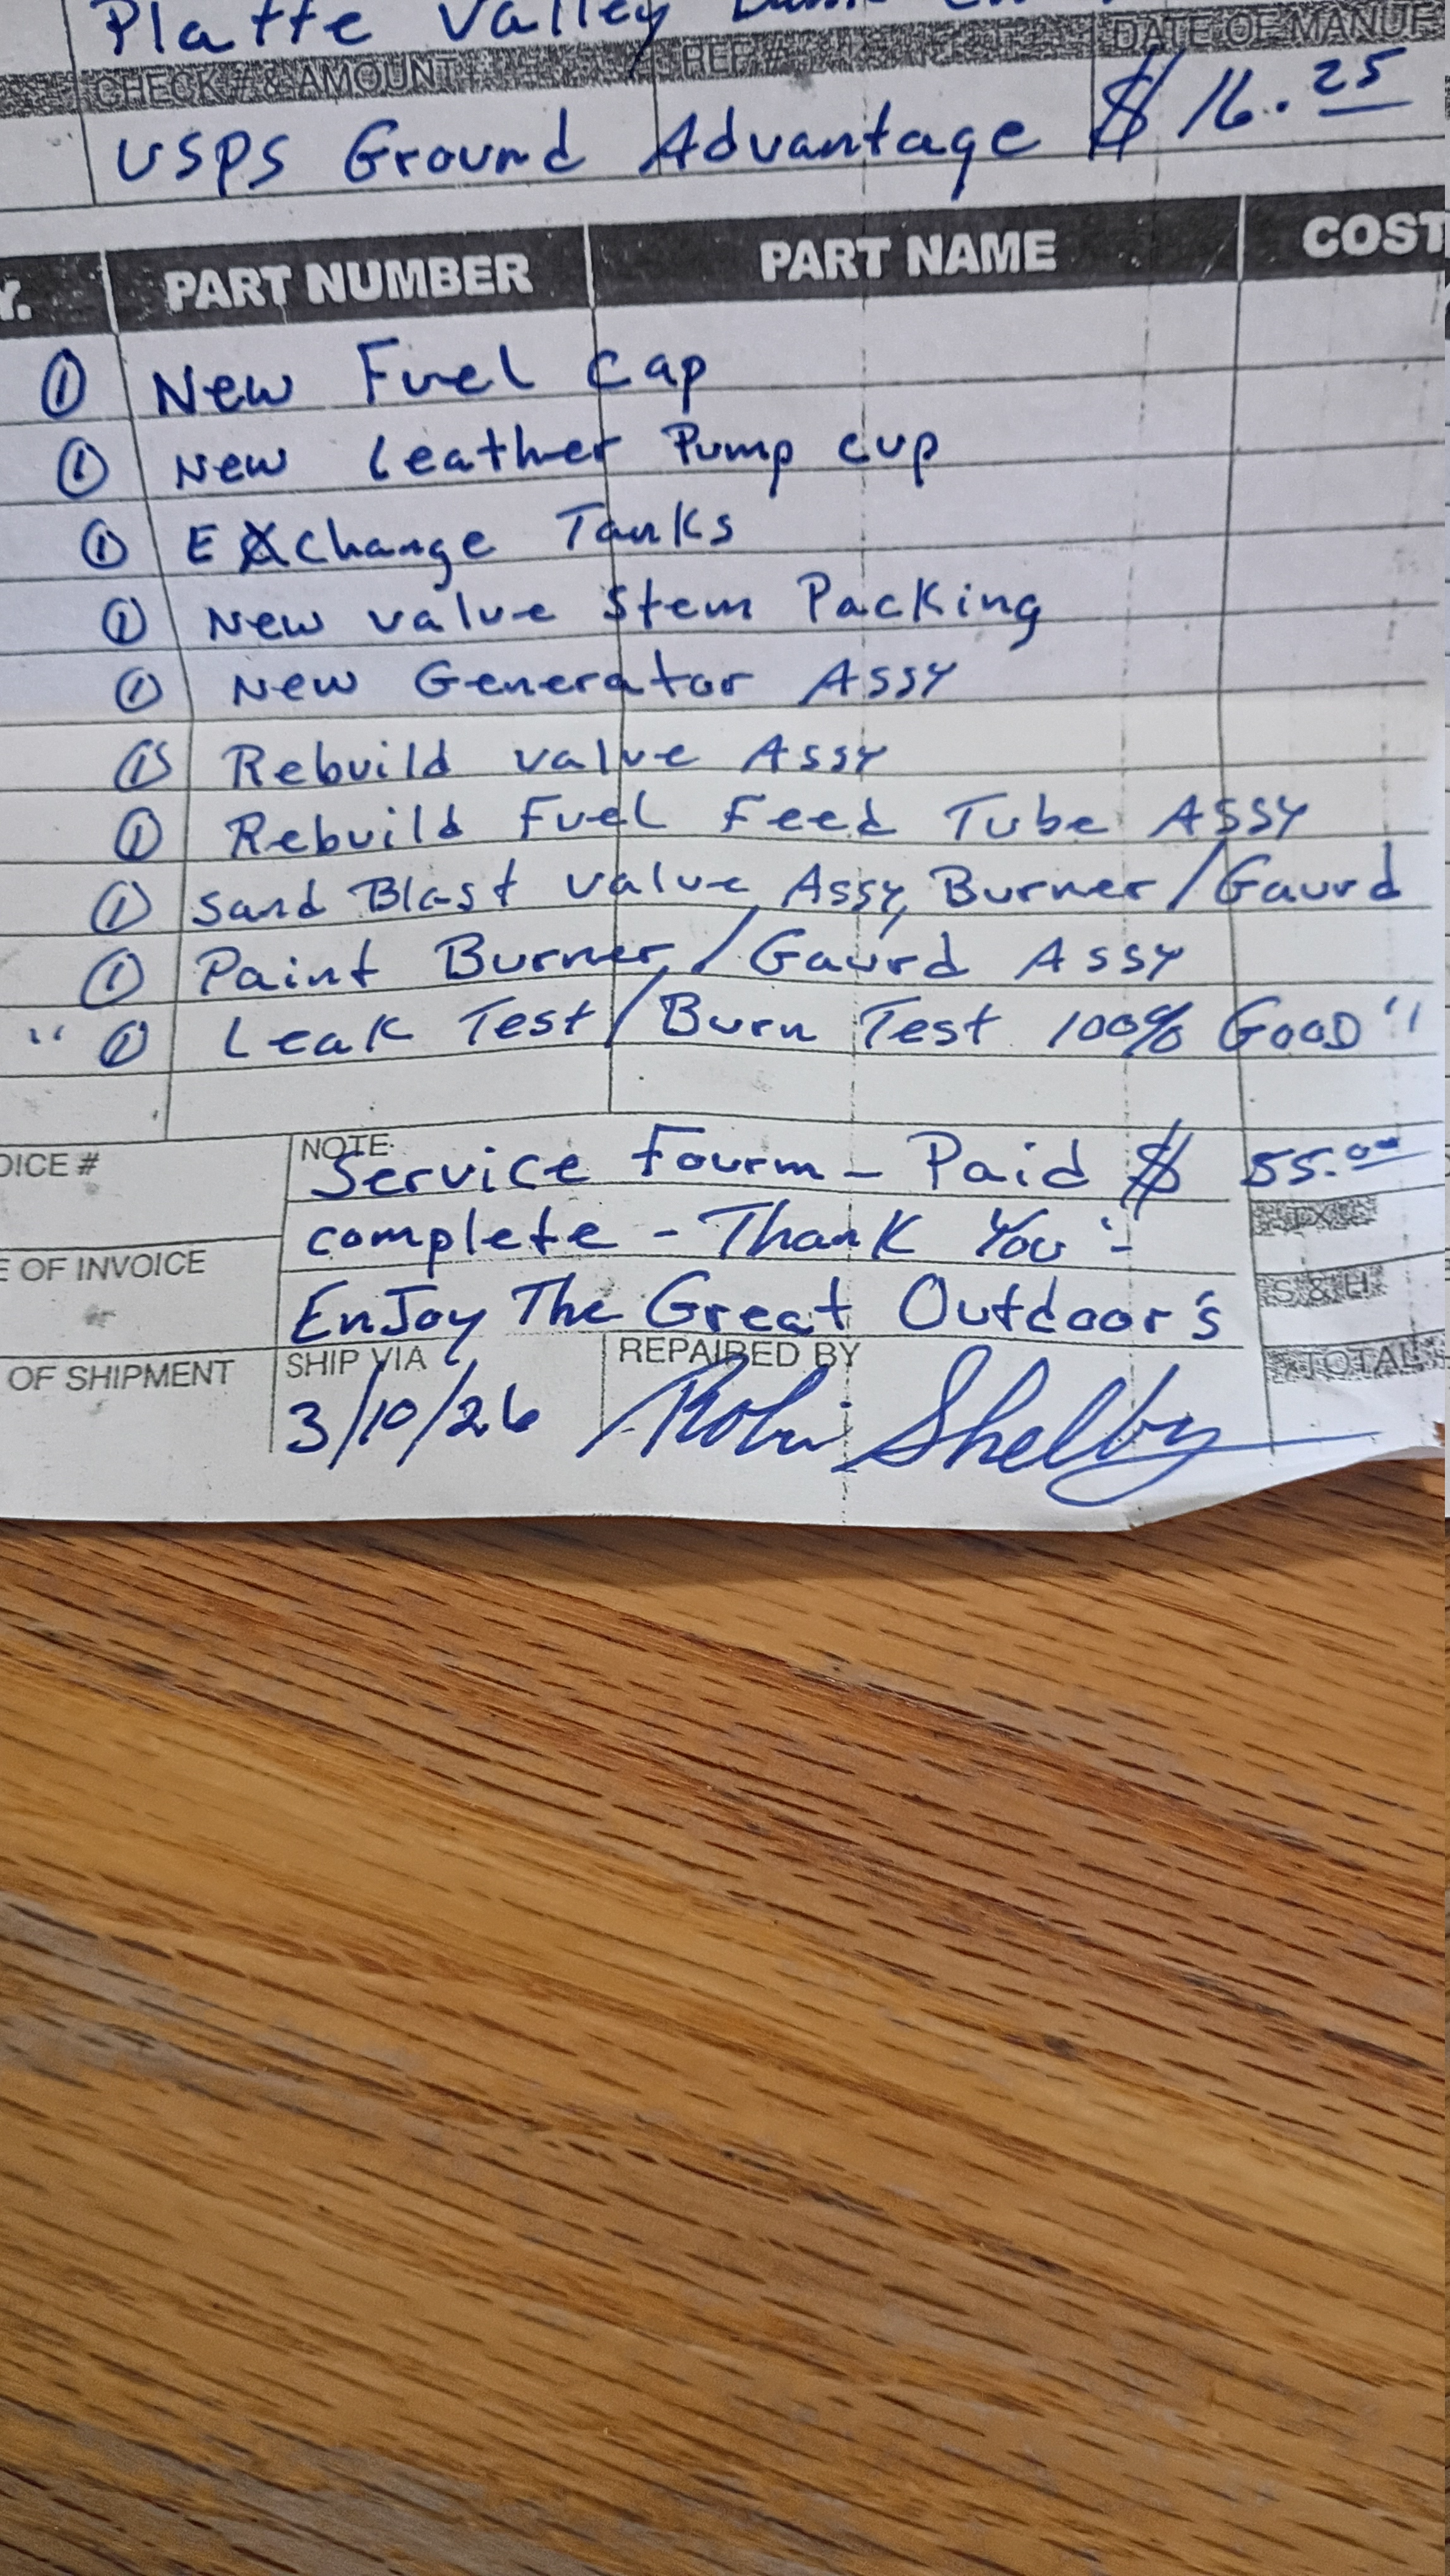 Platte Valley
CHECK # & AMOUNT REF # DATE OF MANUF
USPS Ground Advantage $16.25
Y. PART NUMBER PART NAME COST
1 New Fuel Cap
1 New Leather Pump cup
1 Exchange Tanks
1 New valve Stem Packing
1 New Generator Assy
1 Rebuild valve Assy
1 Rebuild Fuel Feed Tube Assy
1 Sand Blast valve Assy, Burner/Gaurd
1 Paint Burner/Gaurd Assy
"1 Leak Test/Burn Test 100% Good"
OICE # NOTE: Service Fourm - Paid $ 55.00
TX
complete - Thank You -
E OF INVOICE S & H
EnJoy The Great Outdoor's
OF SHIPMENT SHIP VIA REPAIRED BY TOTAL
3/10/26 Robin Shelby